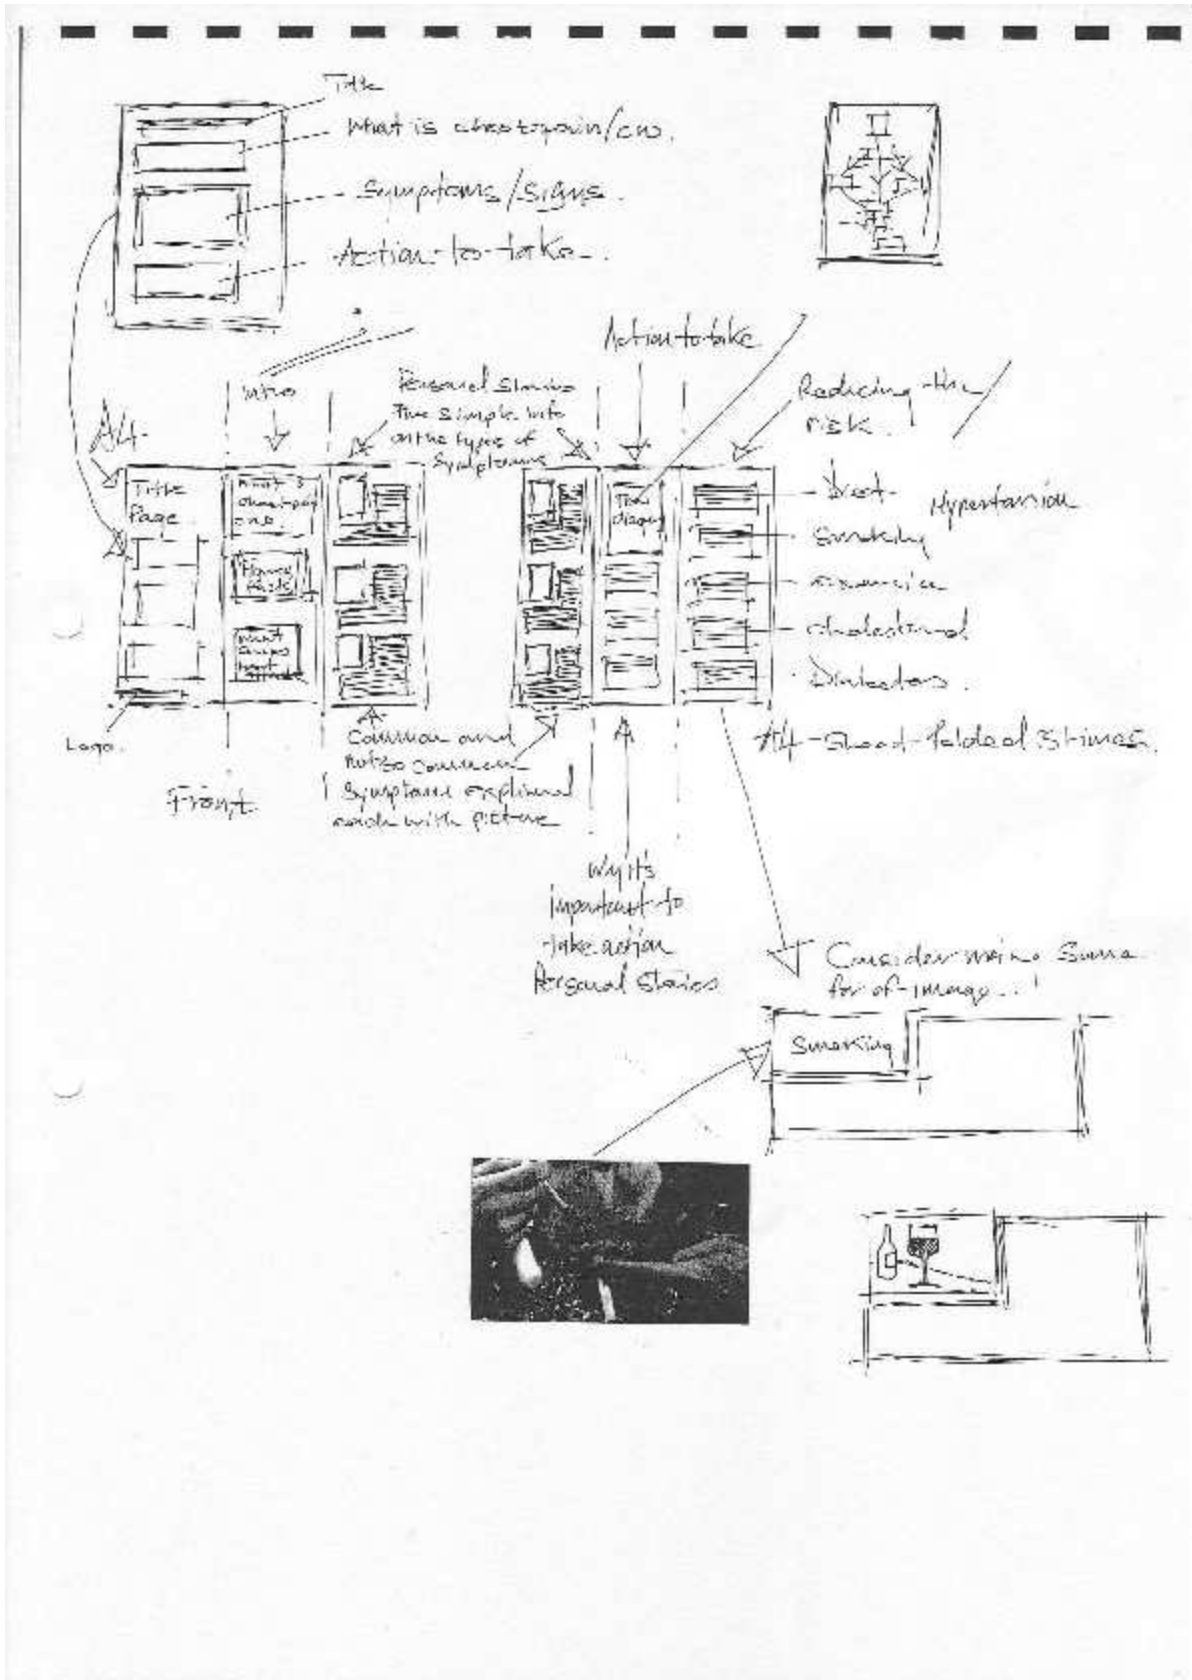 Title
What is chest pain/
Symptoms/signs.
Action-to-take.
Intro
Personal Stories
simple info
on the types of
Symptoms
Action to take
Reducing-the
risk.
A4
Title
Page
What is
chest pain
Flow
diagram
Diet
Hypertension
Smoking
exercise
cholesterol
Diabetes.
Logo.
Front
Common and
not so common
Symptoms explained
each with picture
A4-Sheet-folded 3 times.
Wy it's
important-to
take action
Personal Stories
Consider using some
for of-image..!
Smoking